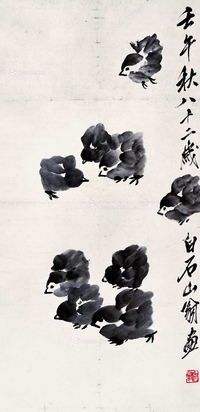 壬午秋八十二歲白石山翁畫